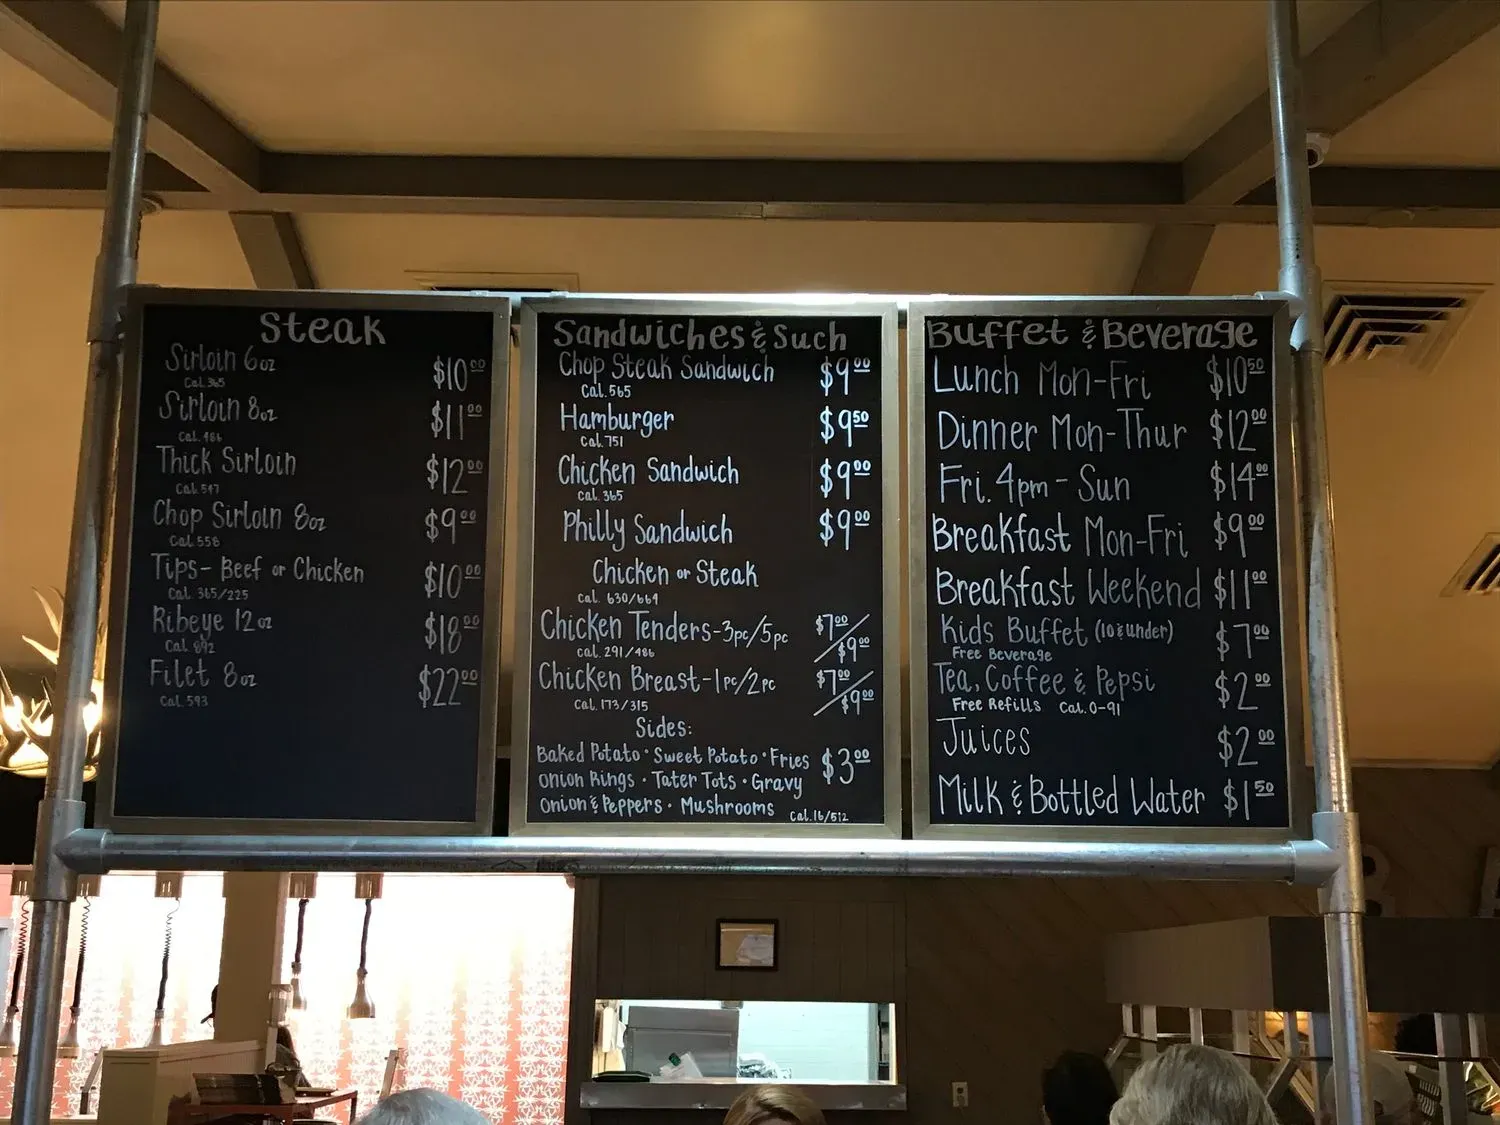 Steak
Sirloin 6oz $10.00
Cal. 365
Sirloin 8oz $11.00
Cal. 486
Thick Sirloin $12.00
Cal. 547
Chop Sirloin 8oz $9.00
Cal. 558
Tips- Beef or Chicken $10.00
Cal. 365/225
Ribeye 12oz $18.00
Cal. 892
Filet 8oz $22.00
Cal. 593
Sandwiches & Such
Chop Steak Sandwich $9.00
Cal. 565
Hamburger $9.50
Cal. 751
Chicken Sandwich $9.00
Cal. 365
Philly Sandwich $9.00
Chicken or Steak
Cal. 630/664
Chicken Tenders-3pc/5pc $7.00/$9.00
Cal. 291/486
Chicken Breast-1pc/2pc $7.00/$9.00
Cal. 173/315
Sides:
Baked Potato · Sweet Potato · Fries $3.00
Onion Rings · Tater Tots · Gravy
Onion & Peppers · Mushrooms
Cal. 16/512
Buffet & Beverage
Lunch Mon-Fri $10.50
Dinner Mon-Thur $12.00
Fri. 4pm - Sun $14.00
Breakfast Mon-Fri $9.00
Breakfast Weekend $11.00
Kids Buffet (10 & under) $7.00
Free Beverage
Tea, Coffee & Pepsi $2.00
Free Refills Cal. 0-91
Juices $2.00
Milk & Bottled Water $1.50